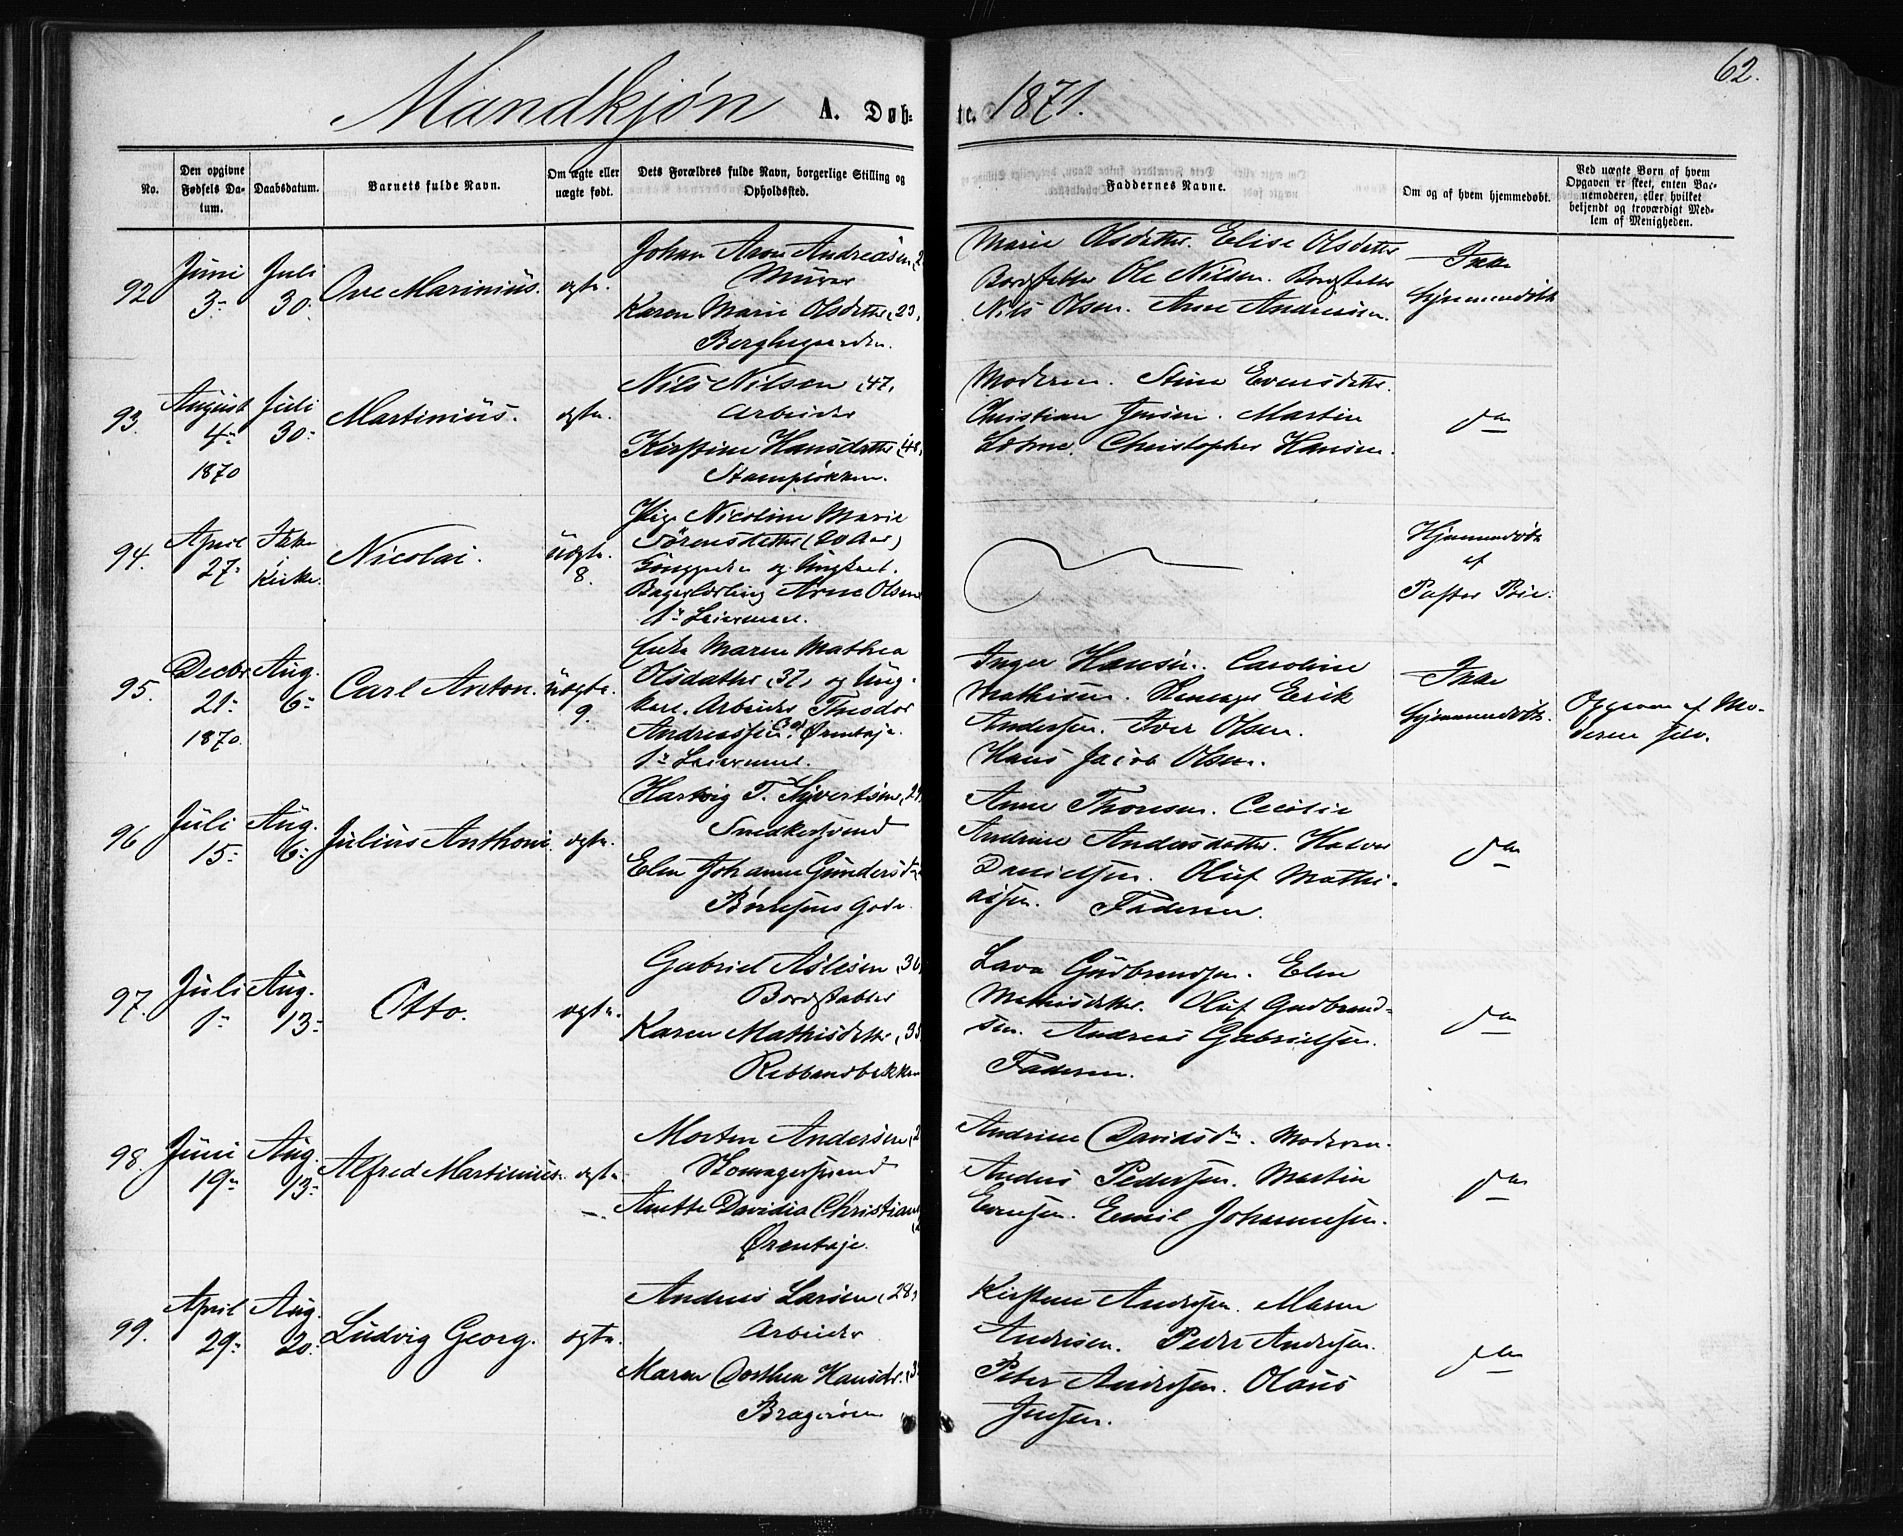 62.
Mandkjøn A. Døbte. 1871.
No.
Den opgivne Fødsels Datum.
Daabsdatum.
Barnets fulde Navn.
Om ægte eller uægte født.
Dets Forældres fulde Navn, borgerlige Stilling og Opholdssted.
Faddernes Navne.
Om og af hvem hjemmedøbt.
Ved uægte Børn af hvem Opgaven er skeet, enten Barnemoderen, eller hvilket bekjendt og troværdigt Medlem af Menigheden.
92
Juni 3-
Juli 30.
Ove Marinius.
ægte.
Johan Aron Andreasen
Murer
Karen Marie Olsdatter, 29,
Berghsgaarden.
Marie Olsdatter. Elise Olsdatter
Bordstabler Ole Nilsen. Bordstabler
Nils Olsen. Arne Andreasen.
Ikke
hjemmedøbt
93.
August 4- 1870
Juli 30-
Martinius.
ægte.
Nils Nilsen, 47,
Arbeider
Kirstine Hansdatter, 48,
Stampeløkken.
Moderen. Stine Evensdatter.
Christian Jensen. Martin
Christopher Hansen.
do
94.
April 27-
Ikke i Kirke.
Nicolai.
Uægte. 8.
Pige Nicoline Marie
Sørensdatter (20 Aar)
og Ungkarl.
Bagerlærling Arne Olsen
1ste Leiermaal.
Hjemmedøbt
af
Pastor
95.
Decbr 21- 1870.
Aug. 6-
Carl Anton.
uægte. 9.
Enke Maren Mathea
Olsdatter, 37, og Ung-
karl. Arbeider Theodor
Andreassen (30) Ørentaje.
1ste Leiermaal.
Inger Hansen. Caroline
Mathisen. Erik
Andersen. Iver Olsen.
Hans Jacob Olsen.
Ikke
hjemmedøbt.
Opgaven af Mo-
deren selv.
96
Juli 15-
Aug. 6-
Julius Anthoni
ægte.
Hartvig T. Syvertsen,
Snedkersvend
Elen Johanne Gundersd.
Børresens Gade.
Anne Thoresen. Cecilie
Andrine Andersdatter. Halvor
Danielsen. Oluf Mathi-
asen. Faderen.
do
97.
Juli 1-
Aug. 13-
Otto.
ægte.
Gabriel Aslesen, 36,
Bordstabler
Karen Mathisdatter, 35,
Ribbandbakken
Lava Gudbrandsen. Elen
Mathisdatter. Oluf Gudbrand-
sen. Andreas Gabrielsen.
Faderen.
do
98.
Juni 19-
Aug. 13-
Alfred Martinius.
ægte.
Morten Andersen,
Komagersvend
Anette Davidia Christian
Ørentaje.
Andrine Davidsdtr. Moderen.
Anders Pedersen. Martin
Evensen. Emil Johannesen.
do
99.
April 29-
Aug. 20.
Ludvig Georg.
ægte.
Andreas Larsen, 28,
Arbeider
Maren Dorthea Hansdtr.
Bragerøen
Kirstine Andersen. Maren
Andersen. Peder Andersen.
Peter Andersen. Olaus
Jensen.
do